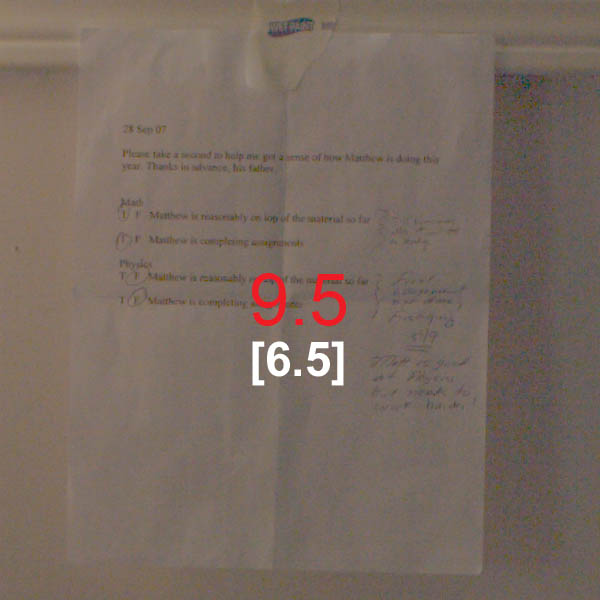 JUST PAINT
28 Sep 07
Please take a second to help me get a sense of how Matthew is doing this
year. Thanks in advance, his father.
Math
T F Matthew is reasonably on top of the material so far
T F Matthew is completing assignments
Physics
T F Matthew is reasonably of the material so far
T F Matthew is completing
9.5
[6.5]
First
assignment
not done,
5/9
Matt is good
at Physics
but needs to
work harder!